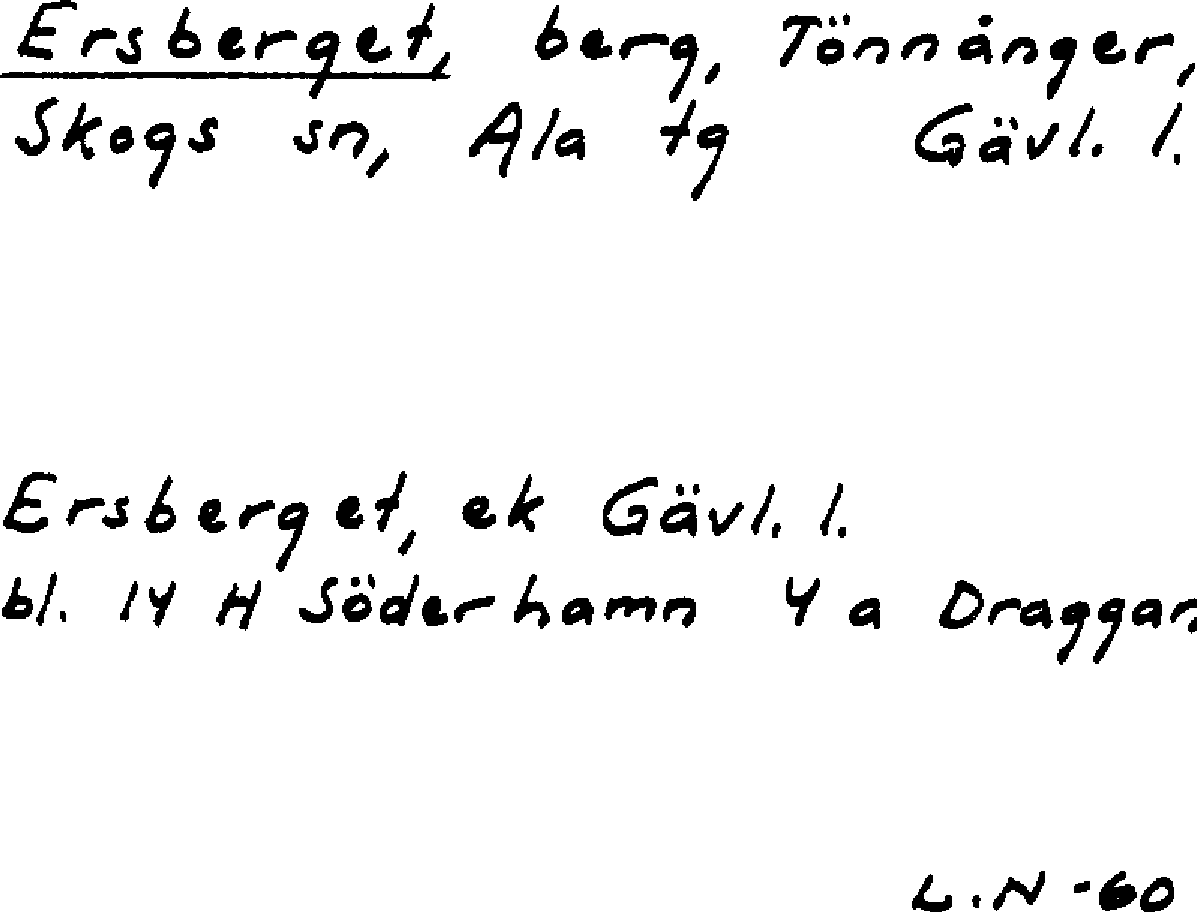 Ersberget, berg, Tönnånger,
Skogs sn, Ala tg Gävl. l.
Ersberget, ek Gävl. l.
bl. 14 H Söderhamn 4 a Draggan
L.N -60